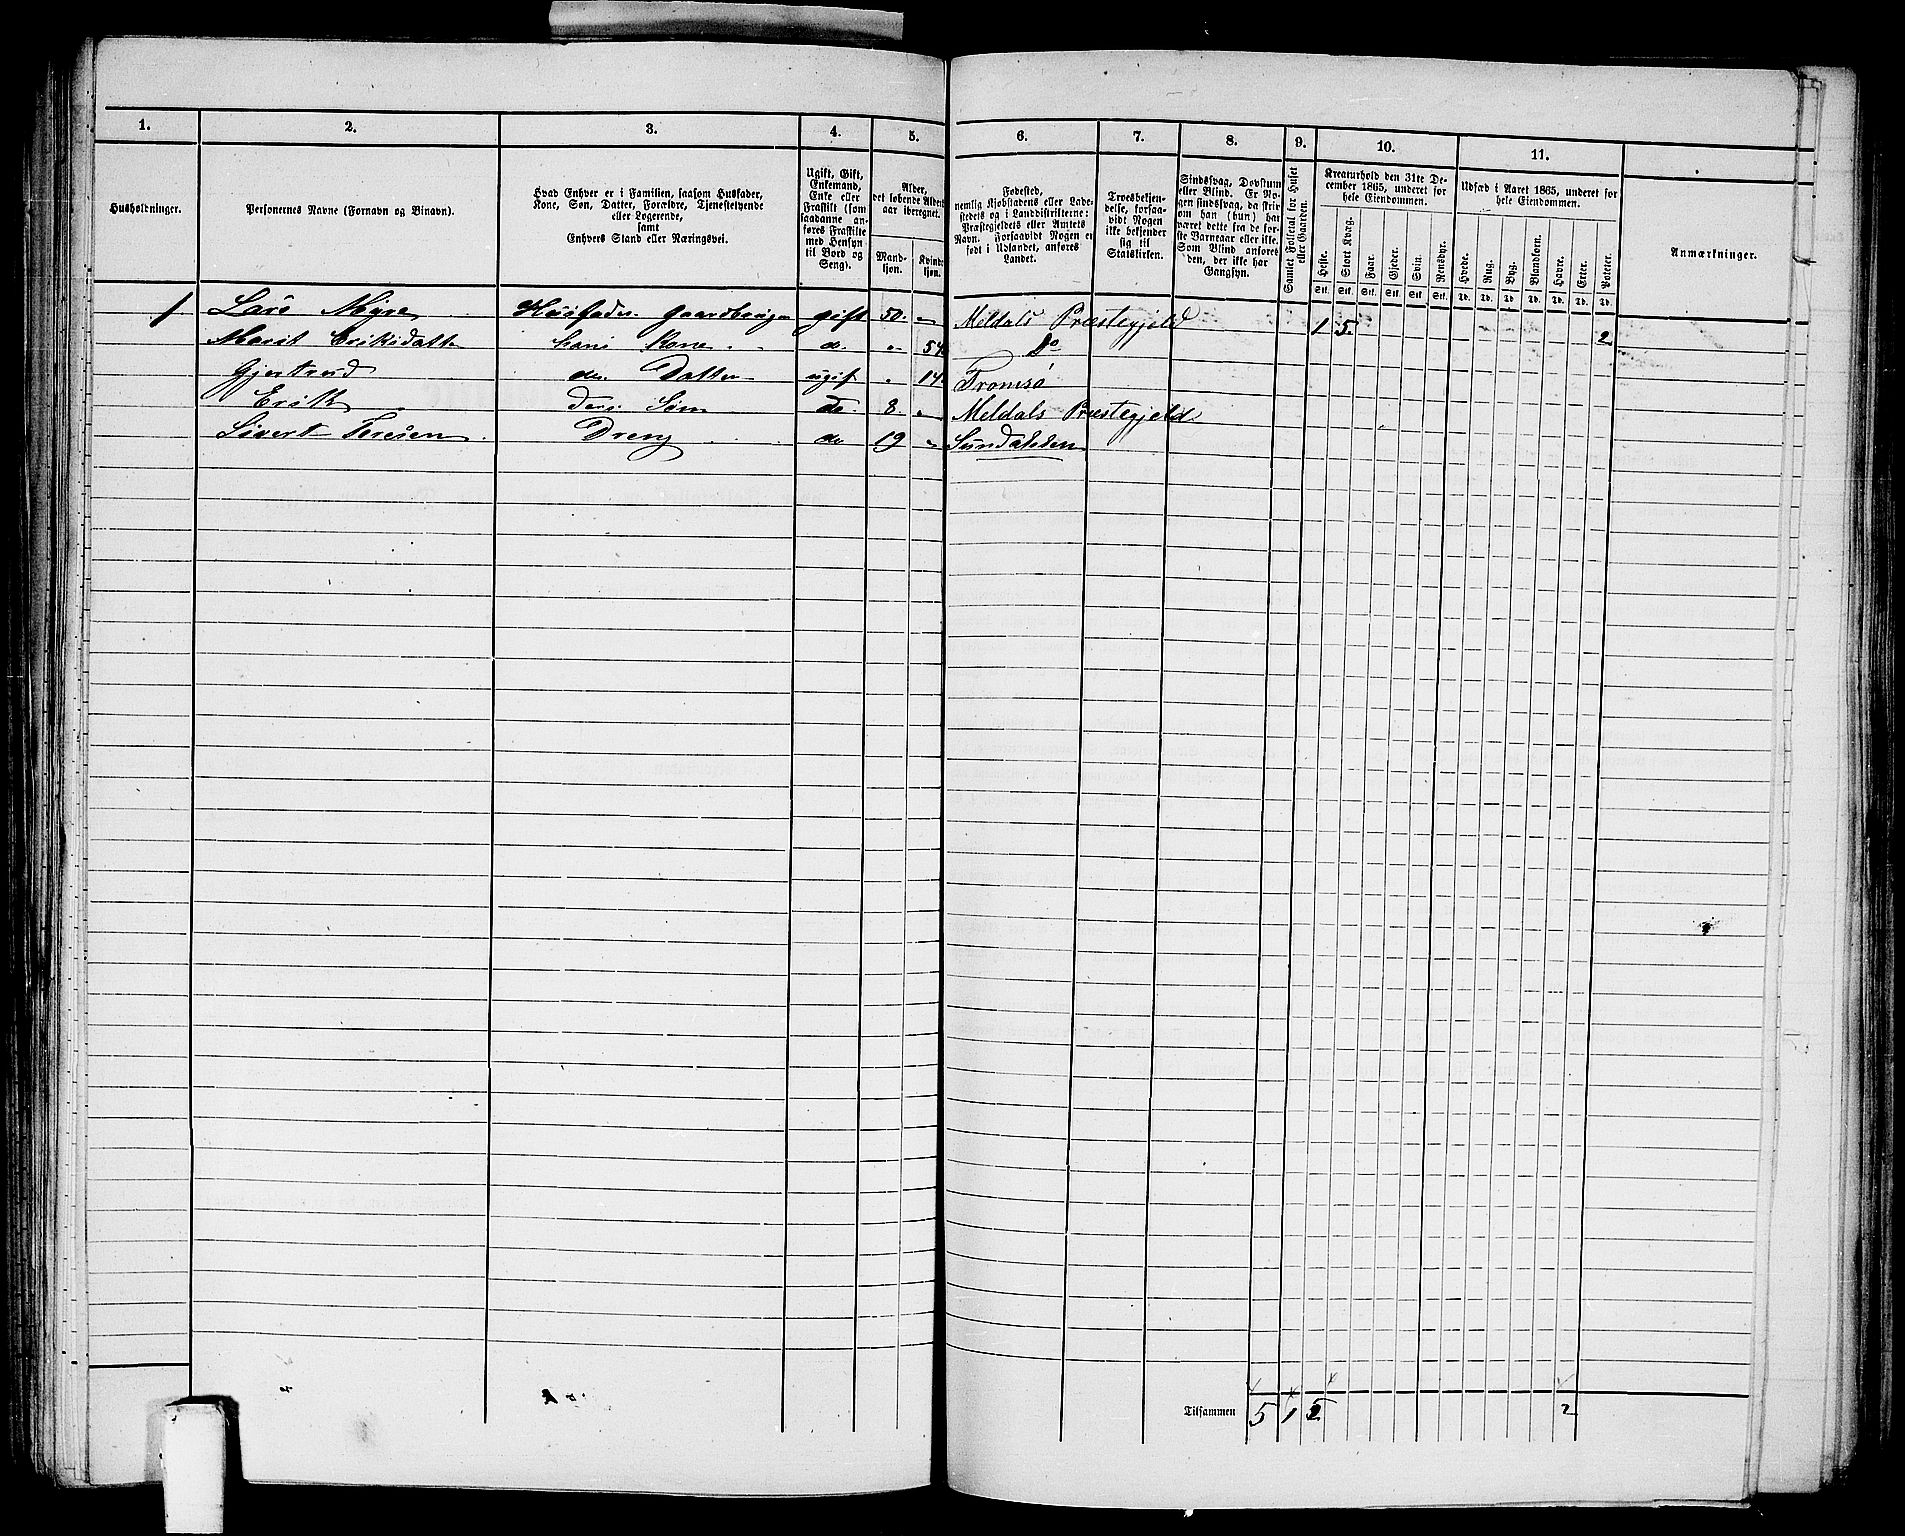 1. 2. 3. 4. 5. 6. 7. 8. 9. 10. 11.
Husholdninger.
Personernes Navne (Fornavn og Binavn).
Hvad Enhver er i Familien, saasom Husfader,
Kone, Søn, Datter, Forældre, Tjenestetyende
eller Logerende,
samt
Enhvers Stand eller Næringsvei.
Ugift, Gift,
Enkemand,
Enke eller
Fraskilt (som
saadanne an-
føres Fraskilte
med Hensyn
til Bord og
Seng).
Alder,
det løbende Alders-
aar iberegnet.
Mand-
kjøn.
Kvind-
kjøn.
Fødested,
nemlig Kjøbstadens eller Lade-
stedets og i Landdistrikterne:
Præstegjeldets eller Amtets
Navn. Forsaavidt Nogen er
født i Udlandet, anføres
Landet.
Troesbekjen-
delse, forsaa-
vidt Nogen
ikke bekjender
sig til
Statskirken.
Sindssvag, Døvstum
eller Blind. Er No-
gen sindssvag, da skriv
om han (hun) har
været dette fra de før-
ste Barneaar eller ikke.
Som Blind anføres
den, der ikke har
Gangsyn.
Samlet Folketal for Huset
eller Gaarden.
Kreaturhold den 31te De-
cember 1865, underet for
hele Eiendommen.
Heste. Stort Kvæg. Faar. Gjeder. Svin. Rensdyr.
Stk. Stk. Stk. Stk. Stk. Stk.
Udsæd i Aaret 1865, underet for
hele Eiendommen.
Hvede. Rug. Byg. Blandkorn. Havre. Erter. Poteter.
Td. Td. Td. Td. Td. Td. Td.
Anmærkninger.
1 Lars Myre Husfader Gaardbruger gift 50. " Meldals Præstegjeld 1 5. 2
Marit Eriksdatter hans Kone do. " 54 Do
Gjertrud des. Datter ugift " 14. Tromsø
Erik Ders Søn do 8. " Meldals Præstegjeld
Sivert Dreng do 19 " Sundalen
Tilsammen 5 1 5 2